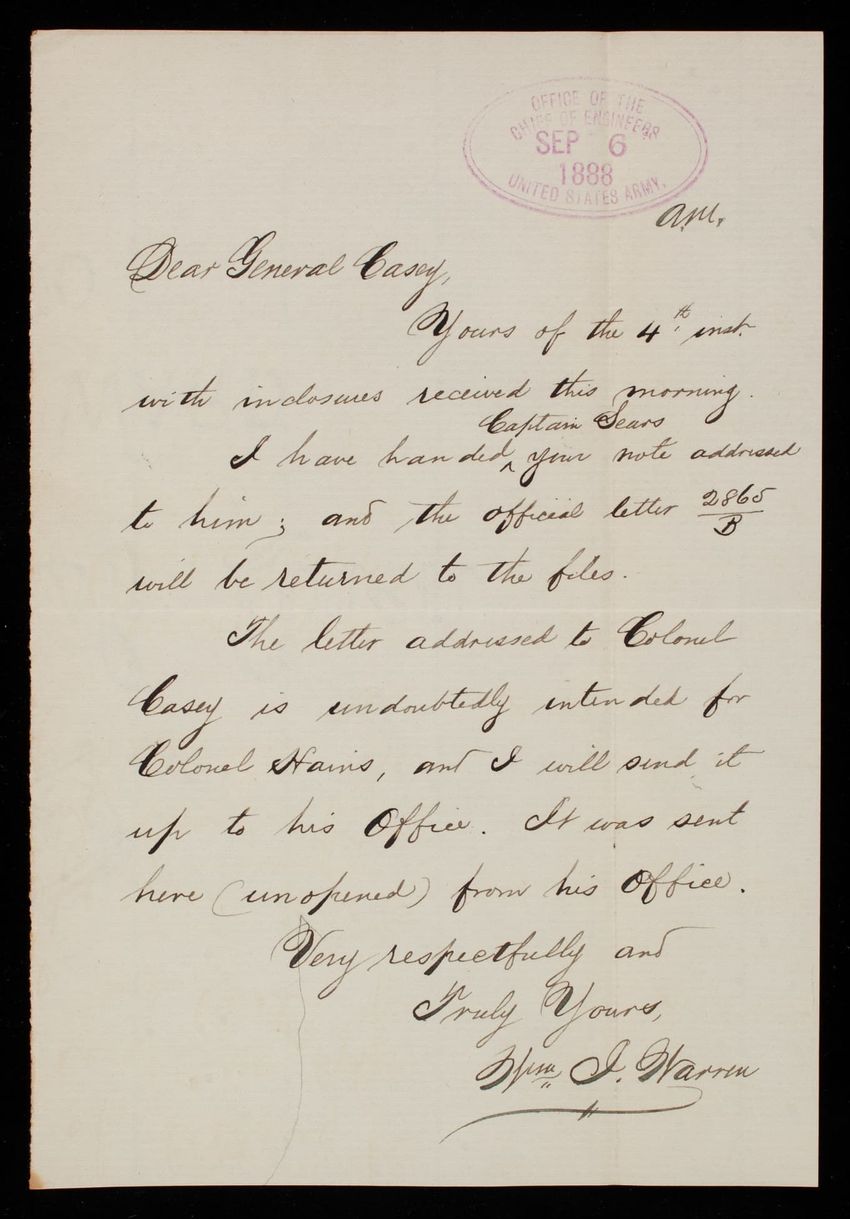 OFFICE OF THE
CHIEF OF ENGINEERS
SEP 6
1888
UNITED STATES ARMY.
a.m.
Dear General Casey,
Yours of the 4th inst.
with inclosures received this morning.
Captain Sears
I have handed ^ your note addressed
to him; and the official letter 2865
B
will be returned to the files.
The letter addressed to Colonel
Casey is undoubtedly intended for
Colonel Hains, and I will send it
up to his Office. It was sent
here (unopened) from his Office.
Very respectfully and
Truly Yours,
Wm J. Warren